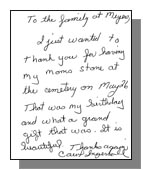 To the family at Meyers,
I just wanted to
thank you for having
my moms stone at
the cemetery on May 26
That was my birthday
and what a grand
gift that was. It is
beautiful Thanks again
Carol